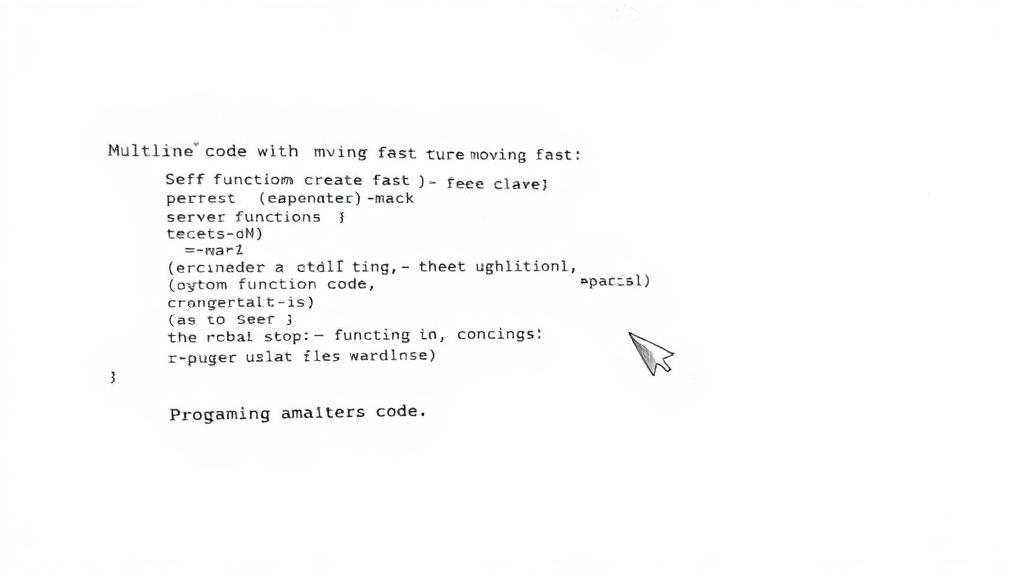 Multline code with mving fast ture moving fast:
Seff functiom create fast )- feee clave}
perrest (eapenater) -mack
server functions }
tecets-dN)
=-war1
(ercineder a ctdlI ting,- theet ughlitionl,
(oytom function code, =pacisl)
crongertalt-is)
(as to Seer }
the rcbal stop:- functing in, concings:
r-puger uslat files wardlnse)
}
Progaming amaiters code.